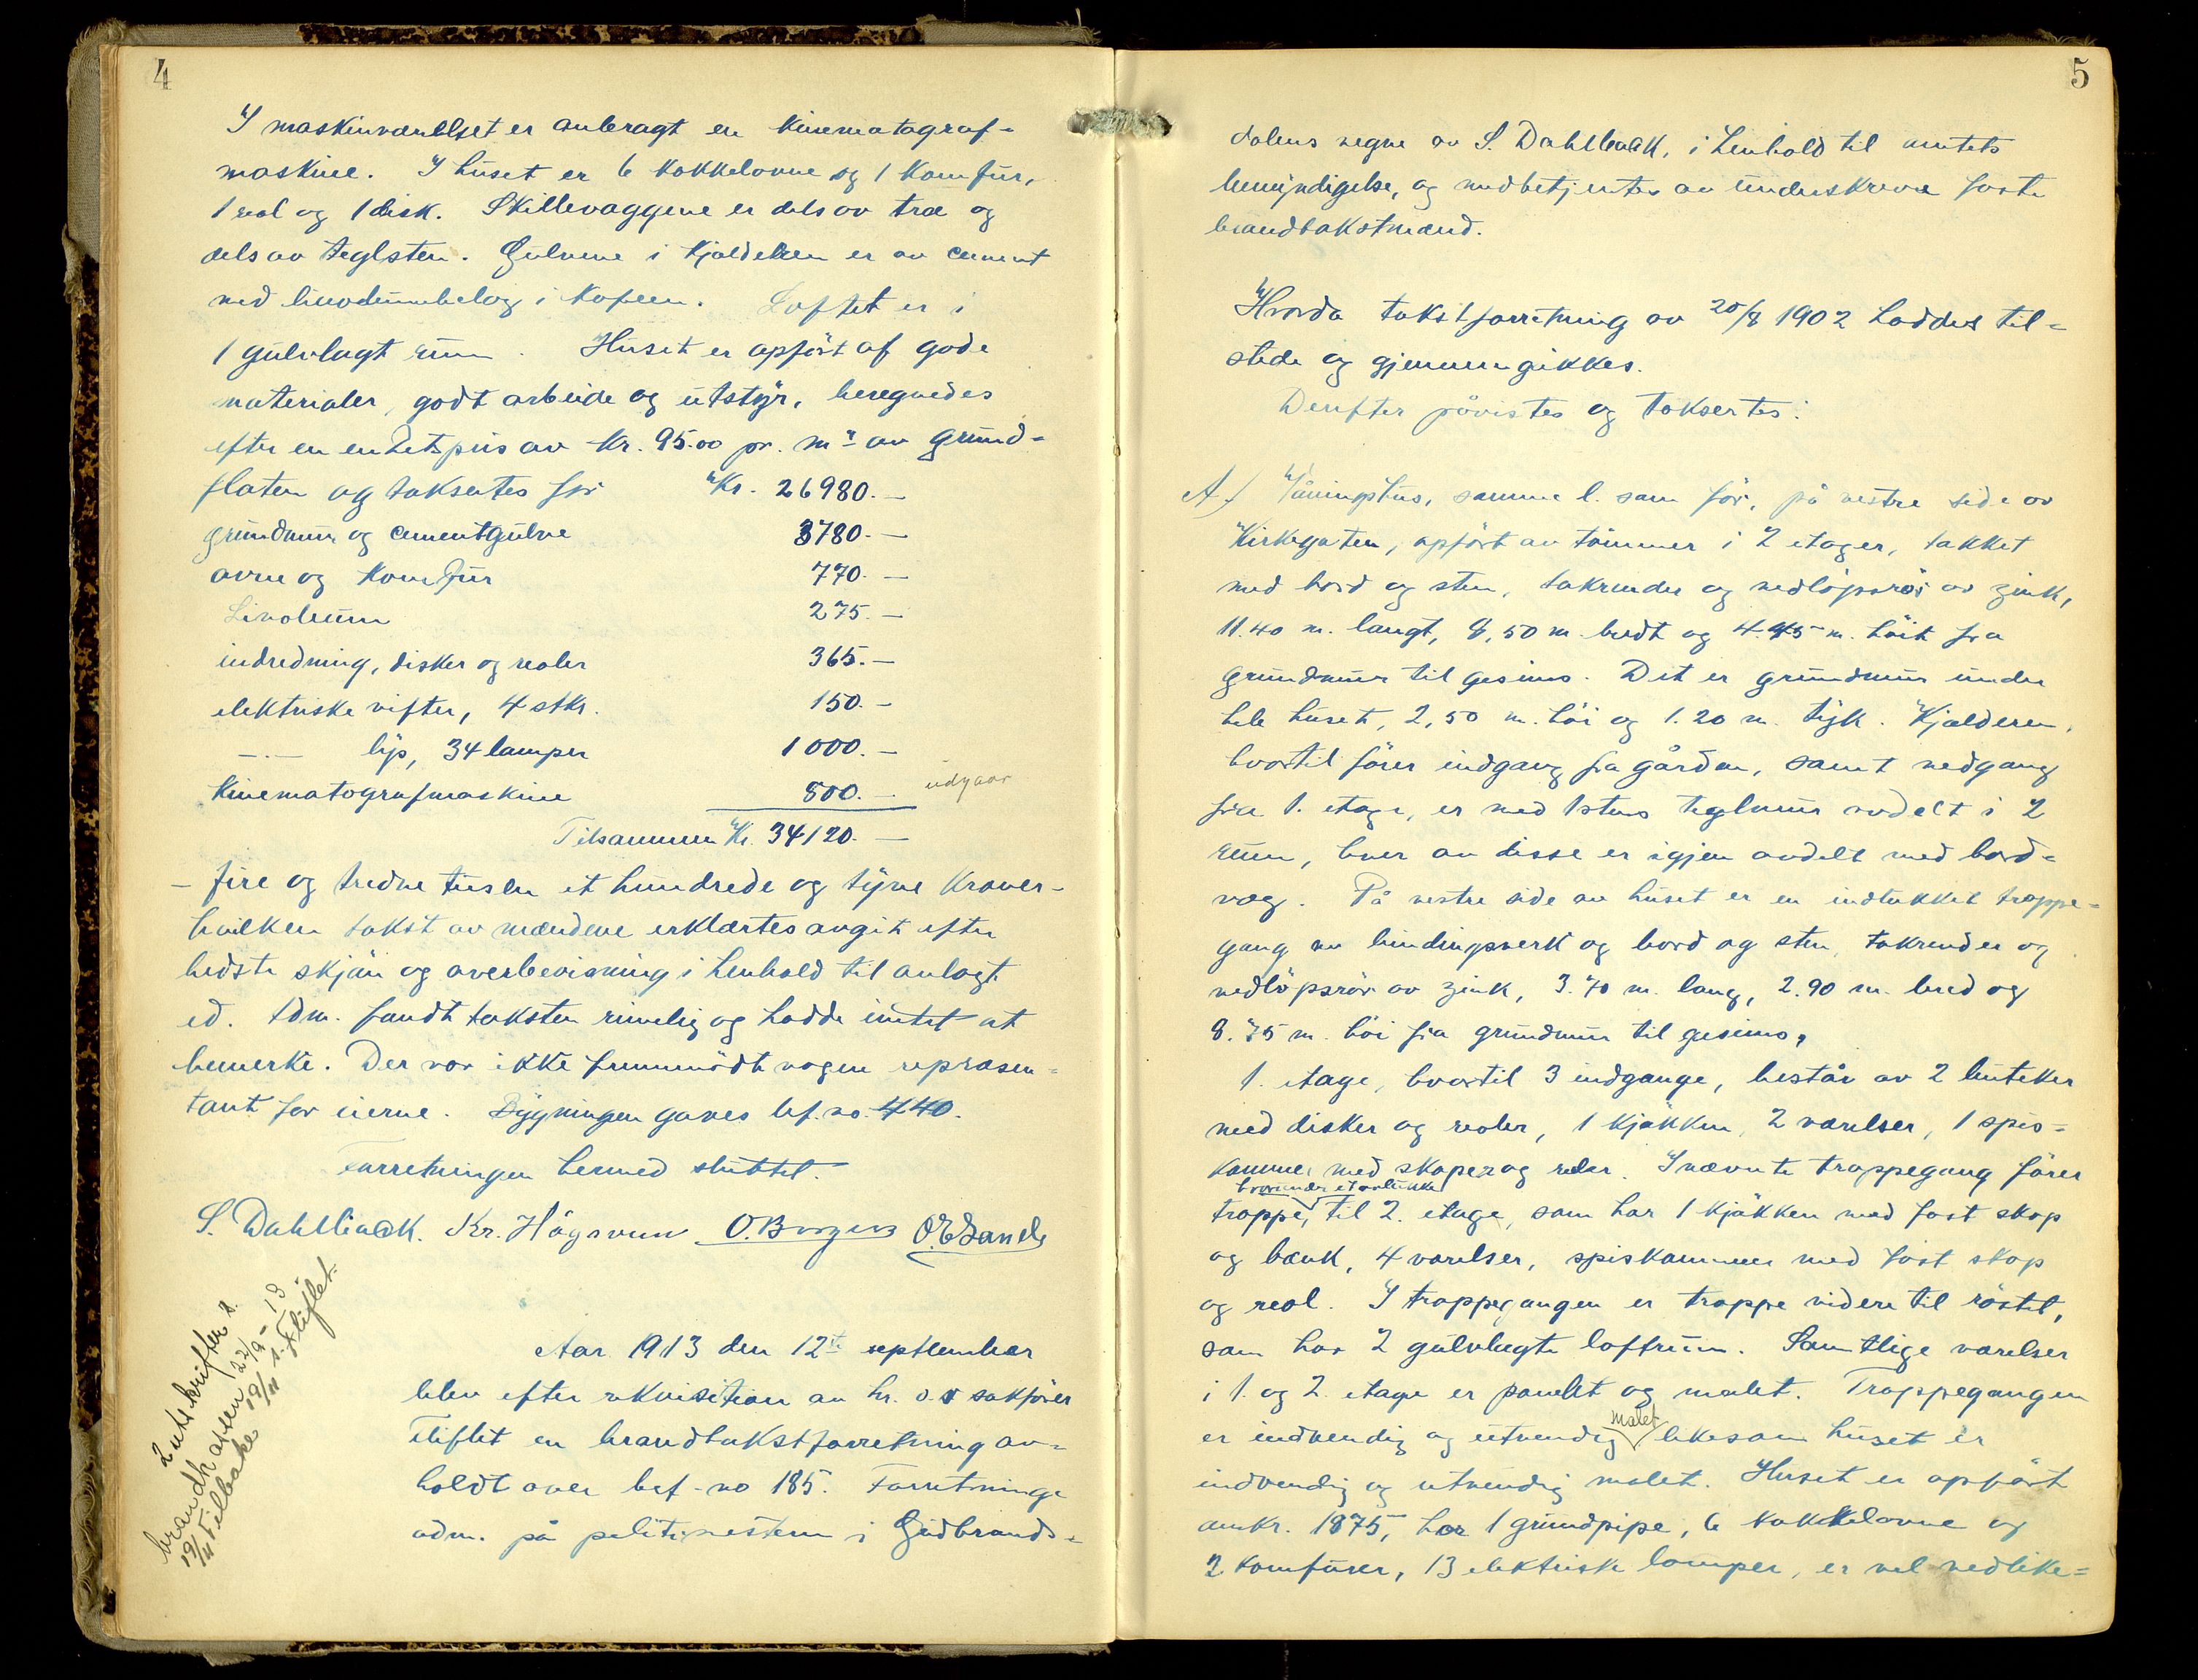 4
I maskinværelset er anbragt en kinematograf-
maskine. I huset er 6 kakkelovne og 1 komfur,
1 reol og 1 disk. Skillevæggene er dels av træ og
dels av teglsten. Gulvene i kjælderen er av cement
med linoleumbelæg i kafeen. Loftet er i
1 gulvlagt rum. Huset er opført af gode
materialer, godt arbeide og utstyr, beregnedes
efter en enhetspris av kr. 95.00 pr. m² av grund-
flaten og taksertes for Kr. 26980.—
grundmur og cementgulve 3780.—
ovne og komfur 770.—
Linoleum 275.—
indredning, disker og reoler 365.—
elektriske vifter, 4 stkr. 150.—
—.— lys, 34 lamper 1000.—
Kinematografmaskine 800.— udgaar
Tilsammen Kr. 34120.—
— fire og tredve tusen et hundrede og tyve kroner —
hvilken takst av mændene erklærtes avgit efter
bedste skjøn og overbevisning i henhold til avlagt
ed. Adm. fandt taksten rimelig og hadde intet at
bemerke. Der var ikke fremmødt nogen repræsen-
tant for eierne. Bygningen gaves bef. no. 440.
Forretningen hermed sluttet.
S. Dahlbäck. Kr. Högsveen O. Borgen O. E. Sande
2 utskrifter s.
brandkassen 22/9-13
19/11 tilbake 19/11 s. Fliflet
Aar 1913 den 12te september
blev efter rekvisition av hr. o.r sakfører
Fliflet en brandtakstforretning av-
holdt over bef. no 185. Forretninge
adm. på politimesteren i Gudbrands-
5
dalens vegne av S. Dahlbäck, i henhold til amtets
bemyndigelse, og medbetjentes av underskrevne faste
brandtakstmænd.
Hvorda takstforretning av 20/8 1902 haddes til-
stede og gjennemgikkes.
Derefter påvistes og taksertes:
A) Våningshus, samme l. som før, på vestre side av
Kirkegaten, opført av tømmer i 2 etager, takket
med bord og sten, takrender og nedløpsrør av zink,
11.40 m. langt, 8,50 m. bredt og 4.45 m. høit fra
grundmur til gesims. Det er grundmur under
hele huset, 2,50 m. høi og 1.20 m. tyk. Kjælderen,
hvortil fører indgang fra gården, samt nedgang
fra 1. etage, er med 1stens teglmur avdelt i 2
rum, hver av disse er igjen avdelt med bord-
væg. På vestre side av huset er en indtakket trappe-
gang av bindingsverk og bord og sten, takrender og
nedløpsrør av zink, 3.70 m. lang, 2.90 m. bred og
8.75 m. høi fra grundmur til gesims,
1. etage, hvortil 3 indgange, består av 2 butiker
med disker og reoler, 1 kjøkken, 2 værelser, 1 spis-
kammer med skaper og reoler. I nævnte trappegang fører
hvorunder et avlukke
trappe, til 2. etage, som har 1 kjøkken med fast skap
og bænk, 4 værelser, spiskammer med fast skap
og reol. I trappegangen er trappe videre til røstet,
som har 2 gulvlagte loftrum. Samtlige værelser
i 1. og 2. etage er panelt og malet. Trappegangen
er indvendig og utvendig malet likesom huset er
indvendig og utvendig malet. Huset er opført
omkr. 1875, har 1 grundpipe, 6 kakkelovne og
2 komfurer, 13 elektriske lamper, er vel vedlike-